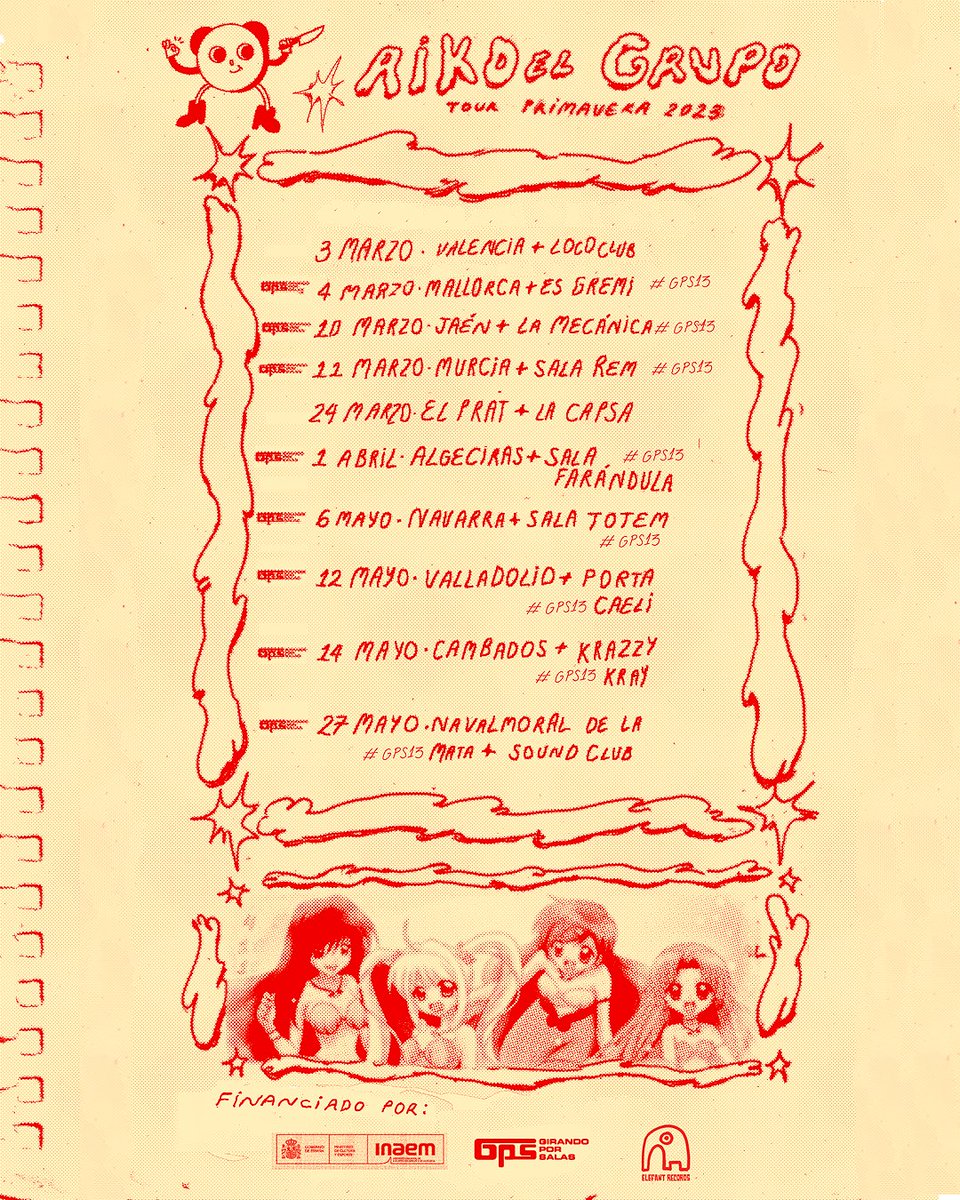 AIKO EL GRUPO
TOUR PRIMAVERA 2023
3 MARZO · VALENCIA + LOCO CLUB
GPS 4 MARZO · MALLORCA + ES GREMI #GPS13
GPS 10 MARZO · JAÉN + LA MECÁNICA #GPS13
GPS 11 MARZO · MURCIA + SALA REM #GPS13
24 MARZO · EL PRAT + LA CAPSA
GPS 1 ABRIL · ALGECIRAS + SALA #GPS13
FARÁNDULA
GPS 6 MAYO · NAVARRA + SALA TOTEM
#GPS13
GPS 12 MAYO · VALLADOLID + PORTA
#GPS13 CAELI
GPS 14 MAYO · CAMBADOS + KRAZZY
#GPS13 KRAY
GPS 27 MAYO · NAVALMORAL DE LA
#GPS13 MATA + SOUND CLUB
FINANCIADO POR:
GOBIERNO DE ESPAÑA
MINISTERIO DE CULTURA Y DEPORTE
inaem
GPS GIRANDO
POR
SALAS
ELEFANT RECORDS